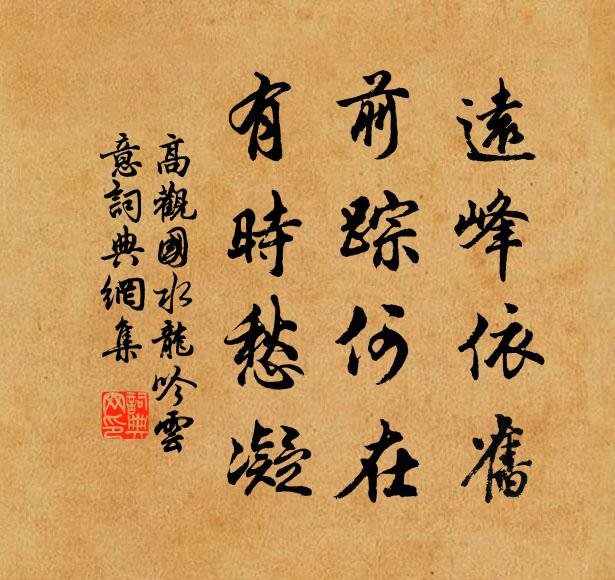 遠峰依舊
前踪何在
有時愁凝
高觀國水龍吟雲
意詞典網集
詞典
网印